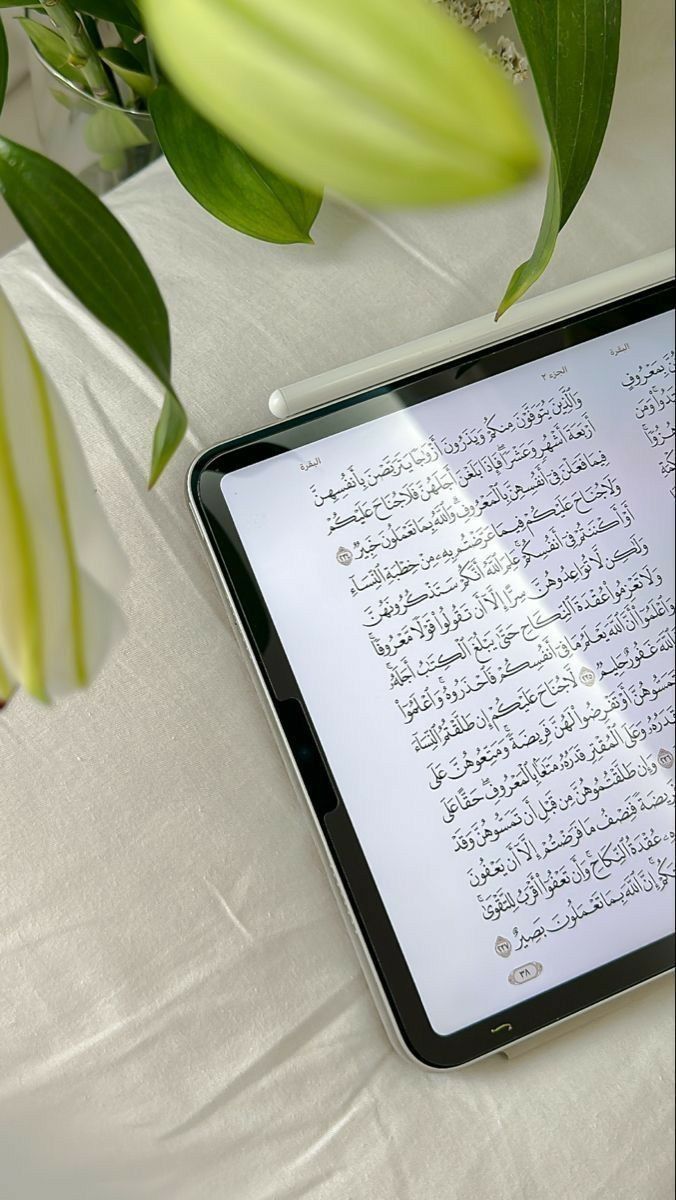 البقرة
بِمَعْرُوفٍ
وَمَن
الجزء ٢
البقرة
وَٱلَّذِينَ يُتَوَفَّوْنَ مِنكُمْ وَيَذَرُونَ أَزْوَٰجًا يَتَرَبَّصْنَ بِأَنفُسِهِنَّ
أَرْبَعَةَ أَشْهُرٍ وَعَشْرًا ۖ فَإِذَا بَلَغْنَ أَجَلَهُنَّ فَلَا جُنَاحَ عَلَيْكُمْ
فِيمَا فَعَلْنَ فِىٓ أَنفُسِهِنَّ بِٱلْمَعْرُوفِ ۗ وَٱللَّهُ بِمَا تَعْمَلُونَ خَبِيرٌ ٢٣٤
وَلَا جُنَاحَ عَلَيْكُمْ فِيمَا عَرَّضْتُم بِهِۦ مِنْ خِطْبَةِ ٱلنِّسَآءِ
أَوْ أَكْنَنتُمْ فِىٓ أَنفُسِكُمْ ۚ عَلِمَ ٱللَّهُ أَنَّكُمْ سَتَذْكُرُونَهُنَّ
وَلَٰكِن لَّا تُوَاعِدُوهُنَّ سِرًّا إِلَّآ أَن تَقُولُوا۟ قَوْلًا مَّعْرُوفًا ۚ
وَلَا تَعْزِمُوا۟ عُقْدَةَ ٱلنِّكَاحِ حَتَّىٰ يَبْلُغَ ٱلْكِتَٰبُ أَجَلَهُۥ ۚ
وَٱعْلَمُوٓا۟ أَنَّ ٱللَّهَ يَعْلَمُ مَا فِىٓ أَنفُسِكُمْ فَٱحْذَرُوهُ ۚ وَٱعْلَمُوٓا۟
ٱللَّهَ غَفُورٌ حَلِيمٌ ٢٣٥ لَّا جُنَاحَ عَلَيْكُمْ إِن طَلَّقْتُمُ ٱلنِّسَآءَ
تَمَسُّوهُنَّ أَوْ تَفْرِضُوا۟ لَهُنَّ فَرِيضَةً ۚ وَمَتِّعُوهُنَّ عَلَى
قَدَرُهُۥ وَعَلَى ٱلْمُقْتِرِ قَدَرُهُۥ مَتَٰعًۢا بِٱلْمَعْرُوفِ ۖ حَقًّا عَلَى
٢٣٦ وَإِن طَلَّقْتُمُوهُنَّ مِن قَبْلِ أَن تَمَسُّوهُنَّ وَقَدْ
فَنِصْفُ مَا فَرَضْتُمْ إِلَّآ أَن يَعْفُونَ
عُقْدَةُ ٱلنِّكَاحِ ۚ وَأَن تَعْفُوٓا۟ أَقْرَبُ لِلتَّقْوَىٰ ۚ
إِنَّ ٱللَّهَ بِمَا تَعْمَلُونَ بَصِيرٌ ٢٣٧
٣٨